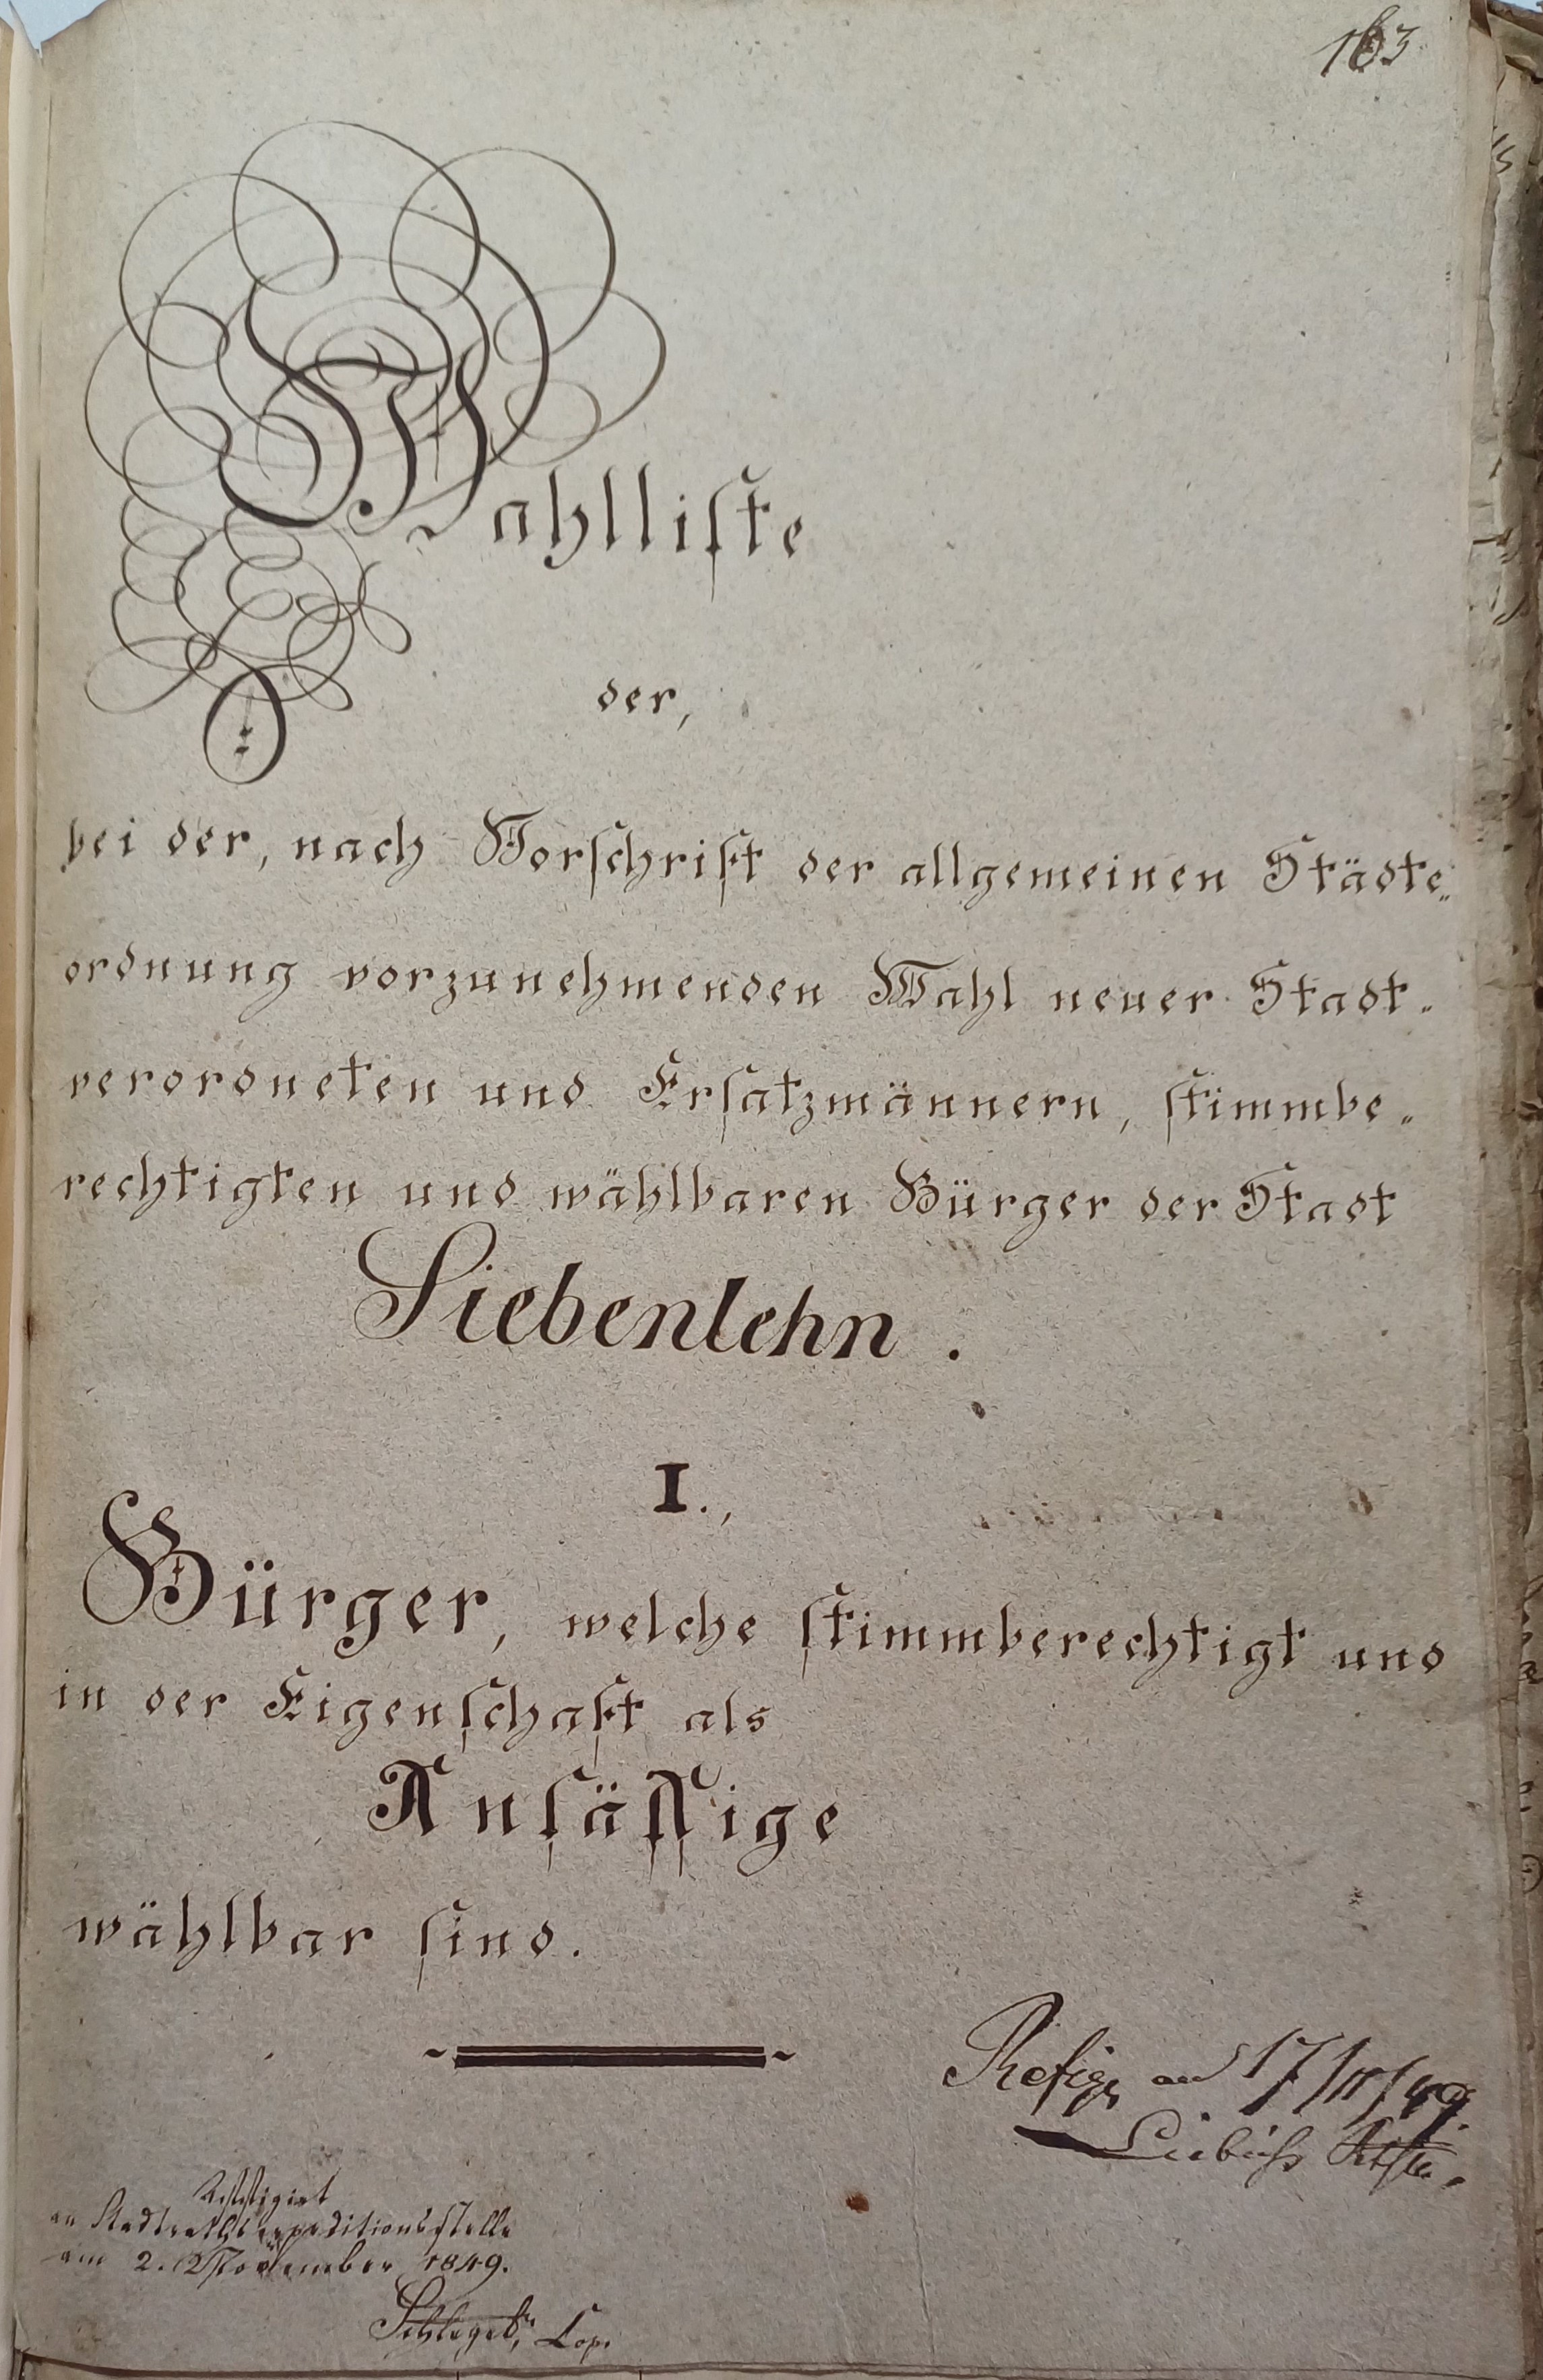 163
Wahlliste
der,
bei der, nach Vorschrift der allgemeinen Städte„
ordnung vorzunehmenden Wahl neuer Stadt„
verordneten und Ersatzmännern, stimmbe„
rechtigten und wählbaren Bürger der Stadt
Siebenlehn.
I.,
Bürger, welche stimmberechtigt und
in der Eigenschaft als
Ansässige
wählbar sind.
Refigs am 17/11/49.
an Stadtrathsexpeditionsstelle
am 2. November 1849.
Schlegel, Cop.